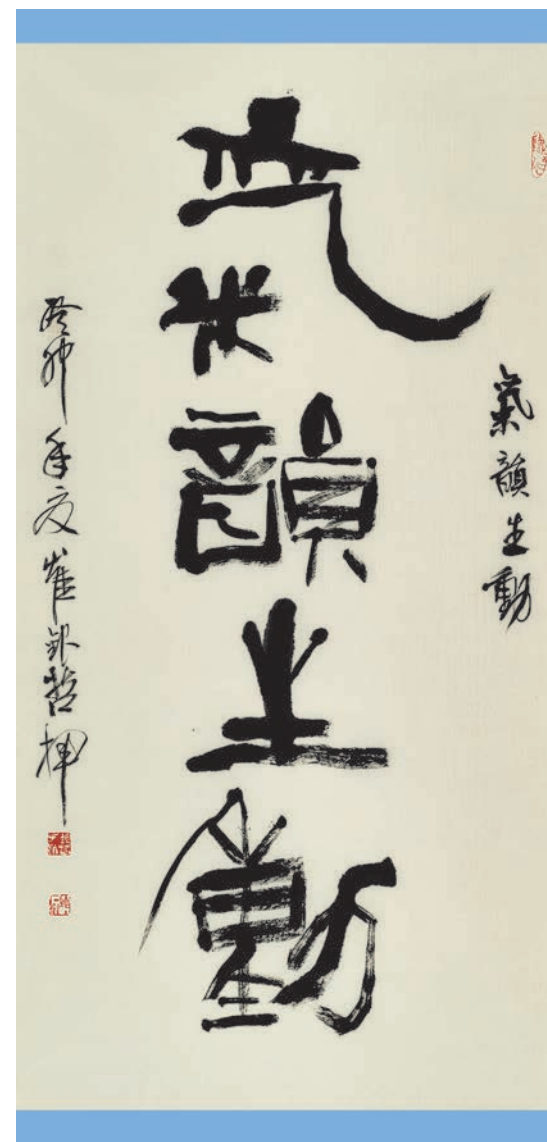 氣韻生動
氣韻生動
癸卯年夏 崔 哲揮